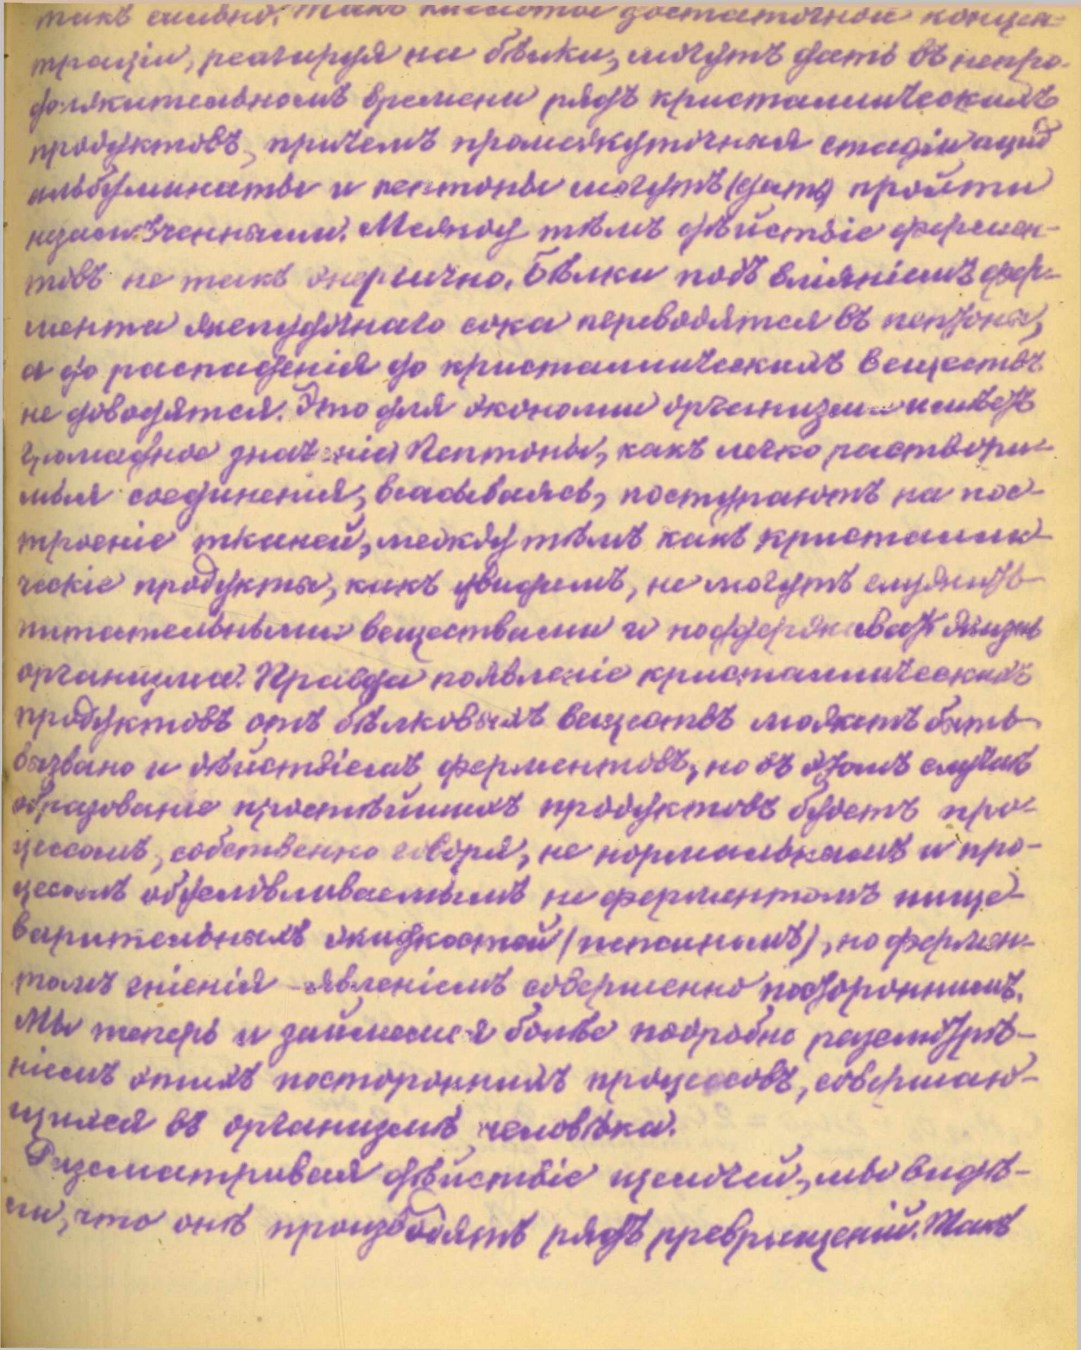 такъ сильно. Такъ кислоты достаточной концен-
траціи, реагируя на бѣлки, могутъ дать въ непро-
должительномъ времени рядъ кристаллическихъ
продуктовъ, причемъ промежуточная стадія ацид
альбуминаты и пептоны могутъ (дать) пройти
незамѣченными. Между тѣмъ дѣйствіе фермен-
товъ не такъ энергично. Бѣлки подъ вліяніемъ фер-
мента желудочнаго сока переводятся въ пептоны,
а до распаденія до кристаллическихъ веществъ
не доводятся. Это для экономіи организма имѣетъ
громадное значеніе. Пептоны, какъ легко раствори-
мыя соединенія, всасываясь, поступаютъ на пос-
троеніе тканей, между тѣмъ какъ кристалли-
ческіе продукты, какъ увидимъ, не могутъ служить
питательными веществами и поддерживать жизнь
организма. Правда появленіе кристаллическихъ
продуктовъ отъ бѣлковыхъ веществъ можетъ быть
вызвано и дѣйствіемъ ферментовъ, но въ этомъ случаѣ
образованіе простѣйшихъ продуктовъ будетъ про-
цессомъ, собственно говоря, не нормальнымъ и про-
цесомъ обусловливаемымъ не ферментомъ пище-
варительныхъ жидкостей (пепсиномъ), но фермен-
томъ гніенія - явленіемъ совершенно постороннимъ.
Мы теперь и займемся болѣе подробно разсмотрѣ-
ніемъ этихъ постороннихъ процессовъ, совершаю-
щихся въ организмѣ человѣка.
Разсматривая дѣйствіе щелочей, мы видѣ-
ли, что онѣ производятъ рядъ превращеній. Такъ